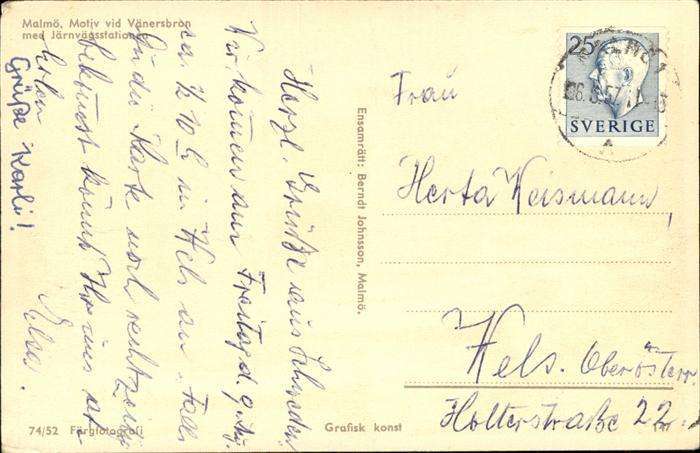 Malmö, Motiv vid Vänersbron
med Järnvägsstationen
Herzl. Grüße aus Schweden
Wir kommen am Freitag d. 9. Aug.
ca ½ 10 h in Wels an. Falls
Du die Karte noch rechtzeitig
bekommst könnt Ihr uns ab-
holen
Elsa.
Grüße Karli!
Ensamrätt: Berndt Johnsson, Malmö.
25
MALMÖ 1
SVERIGE
Frau
Herta Weismann,
Wels. Oberösterr
Holterstraße 22.
74/52 Färgfotografi
Grafisk konst